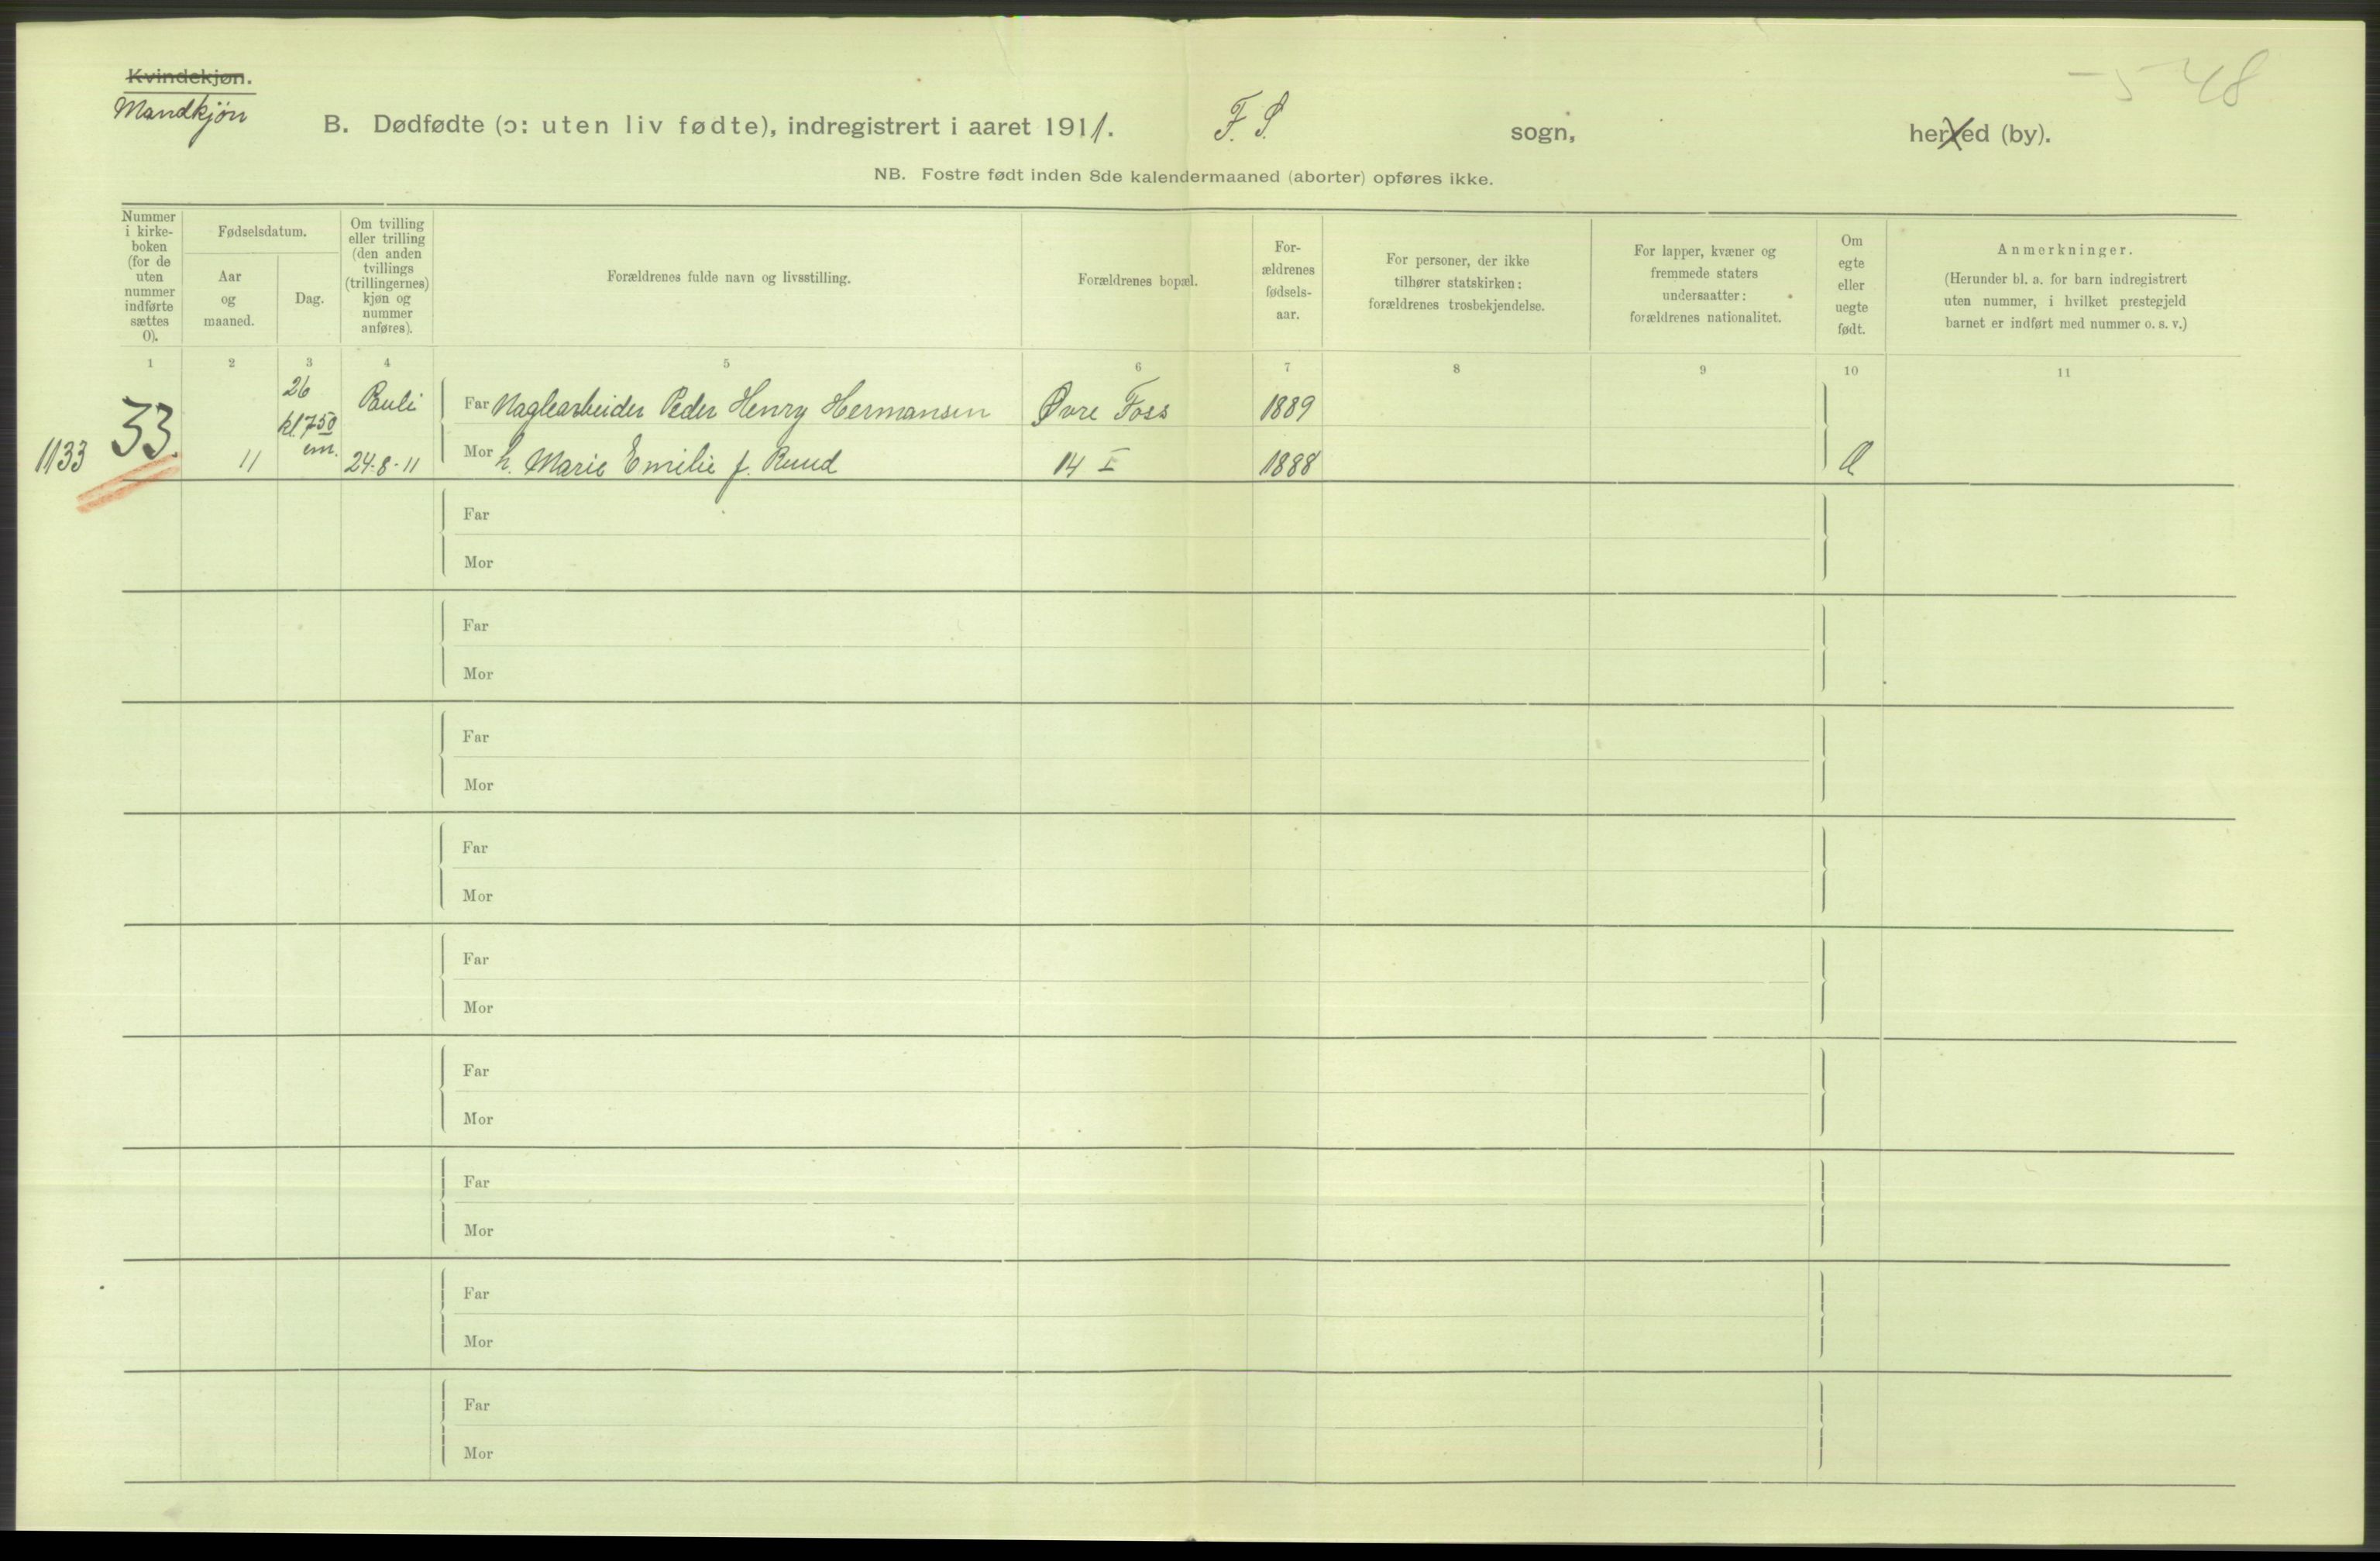 Kvindekjøn.
Mandkjön
B. Dødfødte (ɔ: uten liv fødte), indregistrert i aaret 1911. F. S. sogn, herred (by).
48
NB. Fostre født inden 8de kalendermaaned (aborter) opføres ikke.
Nummer i kirke-boken (for de uten nummer indførte sættes 0).
Fødselsdatum.
Aar og maaned.
Dag.
Om tvilling eller trilling (den anden tvillings (trillingernes) kjøn og nummer anføres).
Forældrenes fulde navn og livsstilling.
Forældrenes bopæl.
For-ældrenes fødsels-aar.
For personer, der ikke tilhører statskirken: forældrenes trosbekjendelse.
For lapper, kvæner og fremmede staters undersaatter: forældrenes nationalitet.
Om egte eller uegte født.
Anmerkninger.
(Herunder bl. a. for barn indregistrert uten nummer, i hvilket prestegjeld barnet er indført med nummer o. s. v.)
1 2 3 4 5 6 7 8 9 10 11
26 Pauli Far Naglearbeider Peder Henry Hermansen Øvre Foss 1889
33. kl. 7 50 em.
1133 11 24-8-11 Mor h. Marie Emilie f. Ruud 14 I 1888
Far
Mor
Far
Mor
Far
Mor
Far
Mor
Far
Mor
Far
Mor
Far
Mor
Far
Mor
Far
Mor